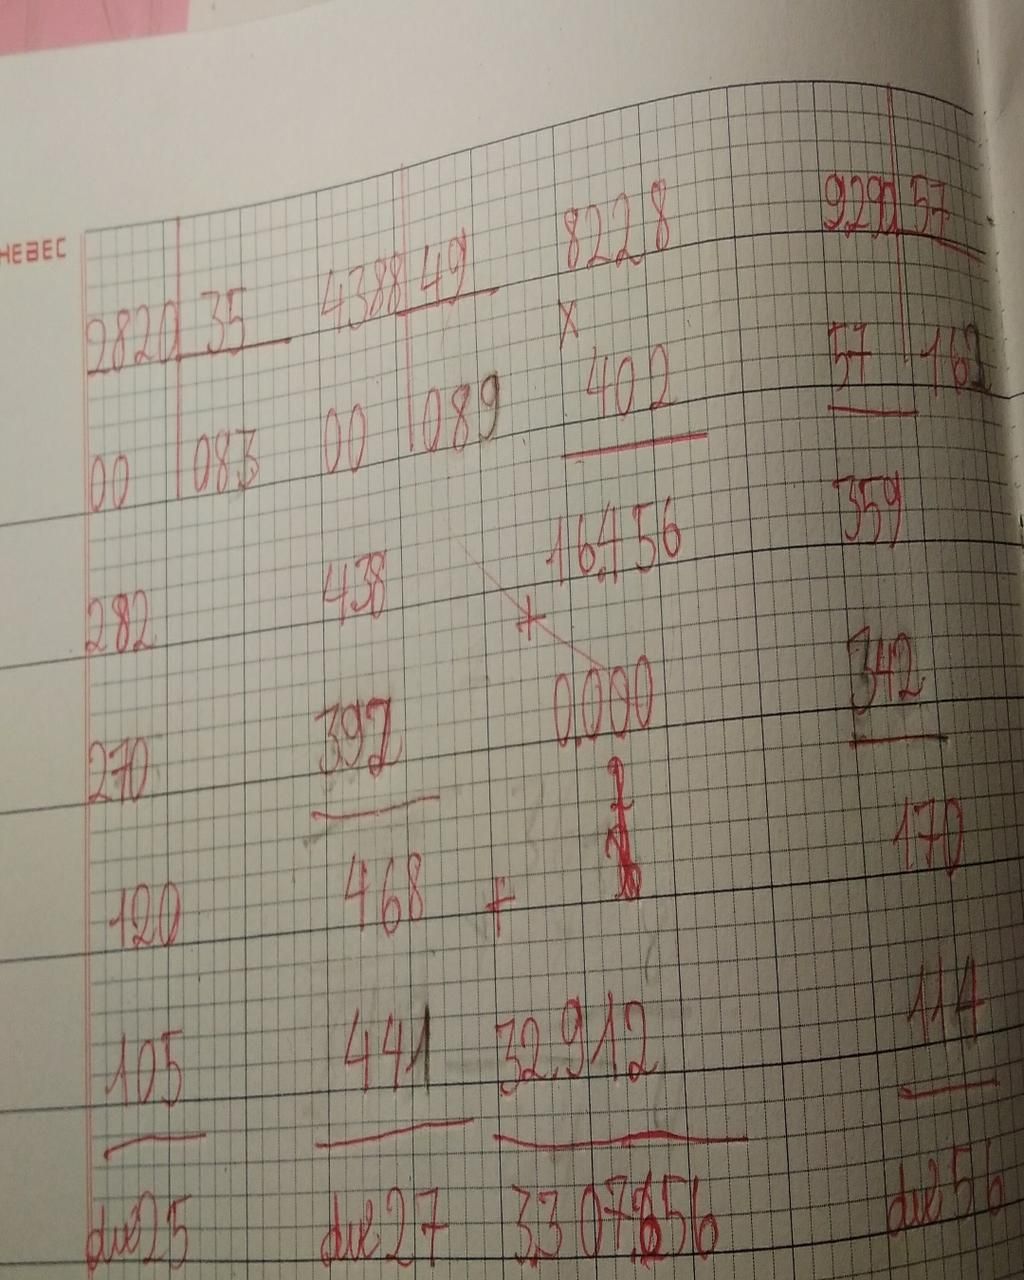 HEBEC
2820 35 4388 49 8228 9290 57
00 083 00 089 X 402 57 162
282 438 16456 359
+
270 392 0000 342
120 468 + 170
105 441 32.912 114
due 25 due 27 3307656 due 56